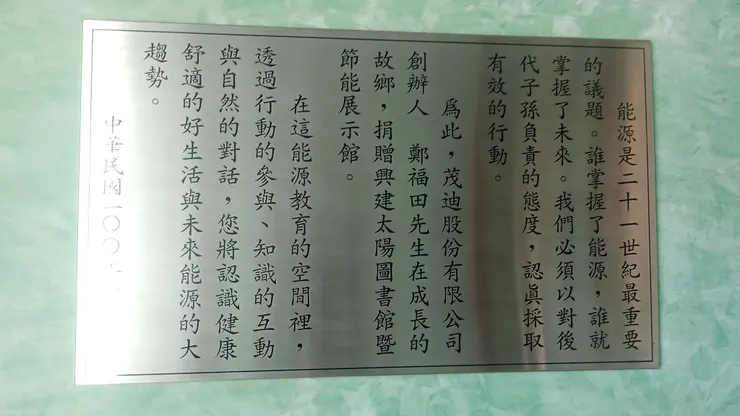 能源是二十一世紀最重要
的議題。誰掌握了能源，誰就
掌握了未來。我們必須以對後
代子孫負責的態度，認眞採取
有效的行動。
爲此，茂迪股份有限公司
創辦人　鄭福田先生在成長的
故鄉，捐贈興建太陽圖書館暨
節能展示館。
在這能源教育的空間裡，
透過行動的參與、知識的互動
與自然的對話，您將認識健康
舒適的好生活與未來能源的大
趨勢。
中華民國一〇〇